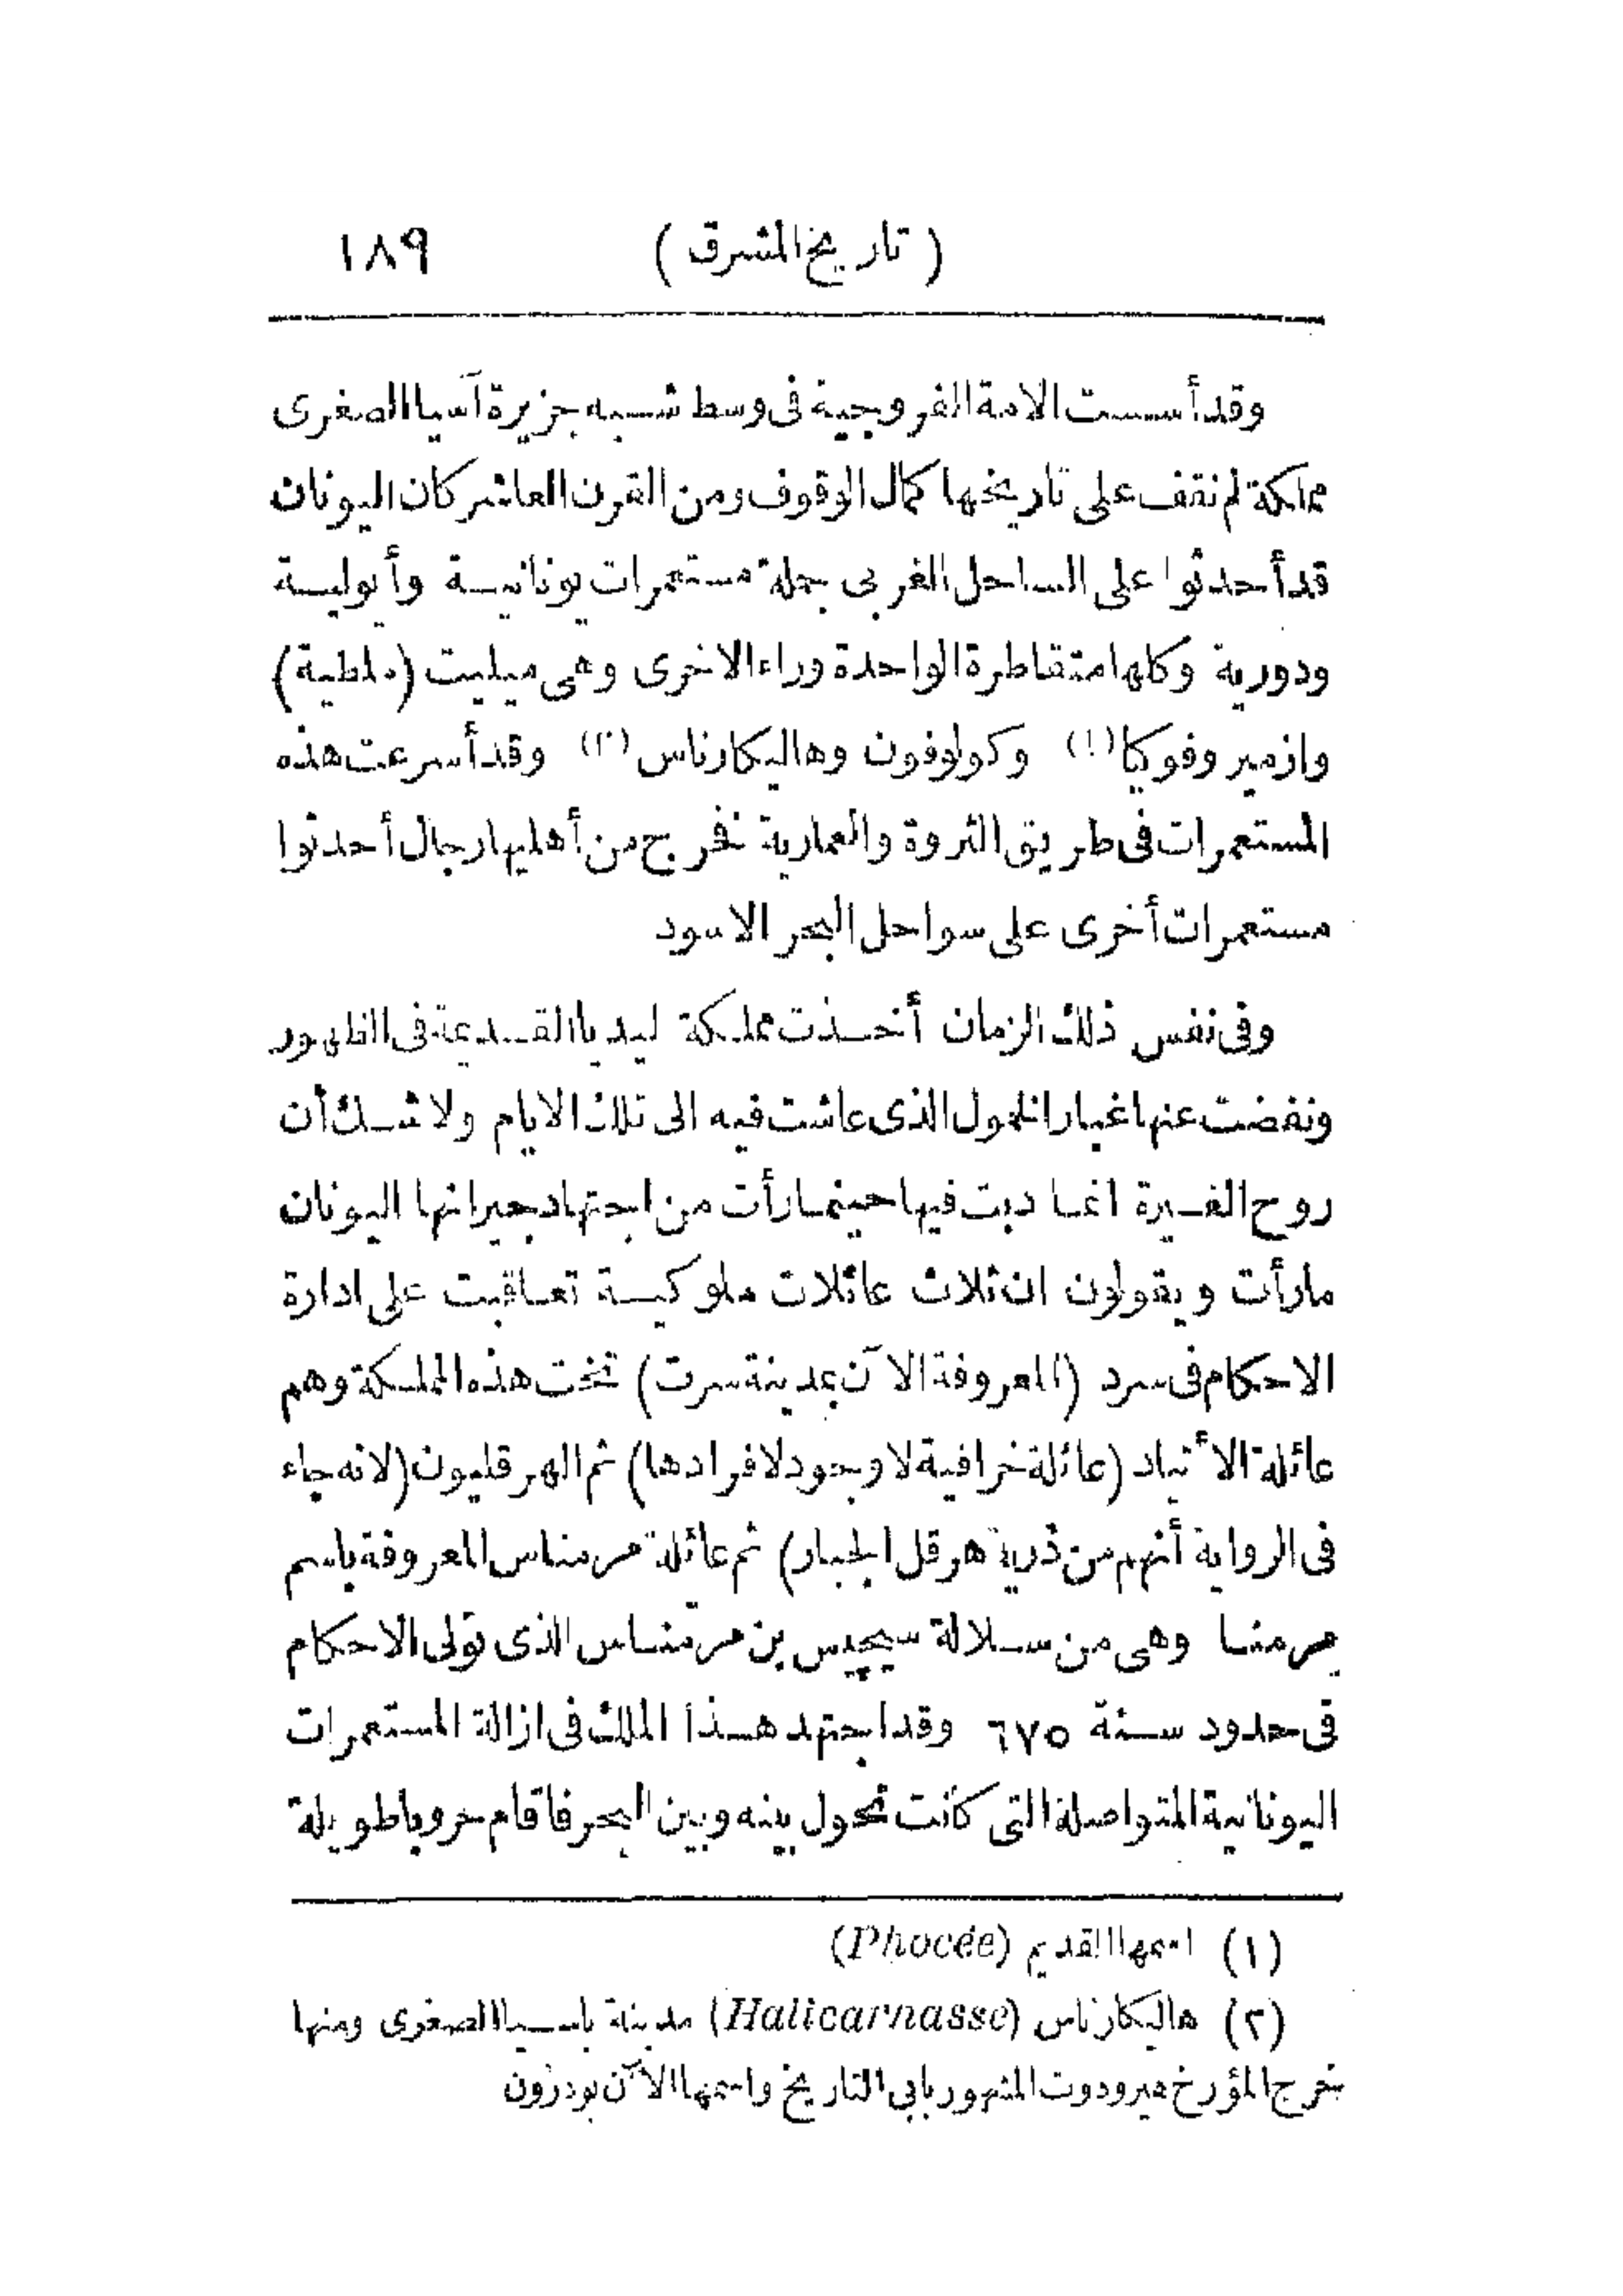 ( تاريخ المشرق ) ١٨٩
وقد أسست الامة الفروجية فى وسط شبه جزيرة آسيا الصغرى
مملكة لم نقف على تاريخها كمال الوقوف ومن القرن العاشر كان اليونان
قد أحدثوا على الساحل الغربى جملة مستعمرات يونانية وأيولية
ودورية وكلها متقاطرة الواحدة وراء الاخرى وهى ميليت (ملطية)
وازمير وفوكيا (١) وكولوفون وهاليكارناس (٢) وقد أسرعت هذه
المستعمرات فى طريق الثروة والعمارية فخرج من أهليها رجال أحدثوا
مستعمرات أخرى على سواحل البحر الاسود
وفى نفس ذلك الزمان أخذت مملكة ليديا القديمة فى الظهور
ونفضت عنها غبار الخمول الذى عاشت فيه الى تلك الايام ولا شك أن
روح الغيرة انما دبت فيها حينما رأت من اجتهاد جيرانها اليونان
مارأت ويقولون ان ثلاث عائلات ملوكية تعاقبت على ادارة
الاحكام فى سرد (المعروفة الآن بمدينة سرت) تخت هذه المملكة وهم
عائلة الأتياد (عائلة خرافية لا وجود لافرادها) ثم الهرقليون (لانه جاء
فى الرواية أنهم من ذرية هرقل الجبار) ثم عائلة مرمناس المعروفة باسم
مرمنا وهى من سلالة سيجيس بن مرمناس الذى تولى الاحكام
فى حدود سنة ٦٧٥ وقد اجتهد هذا الملك فى ازالة المستعمرات
اليونانية المتواصلة التى كانت تحول بينه وبين البحر فاقام حروبا طويلة
(١) اسمها القديم (Phocée)
(٢) هاليكارناس (Halicarnasse) مدينة باسيا الصغرى ومنها
خرج المؤرخ هيرودوت المشهور بابى التاريخ واسمها الآن بودرون